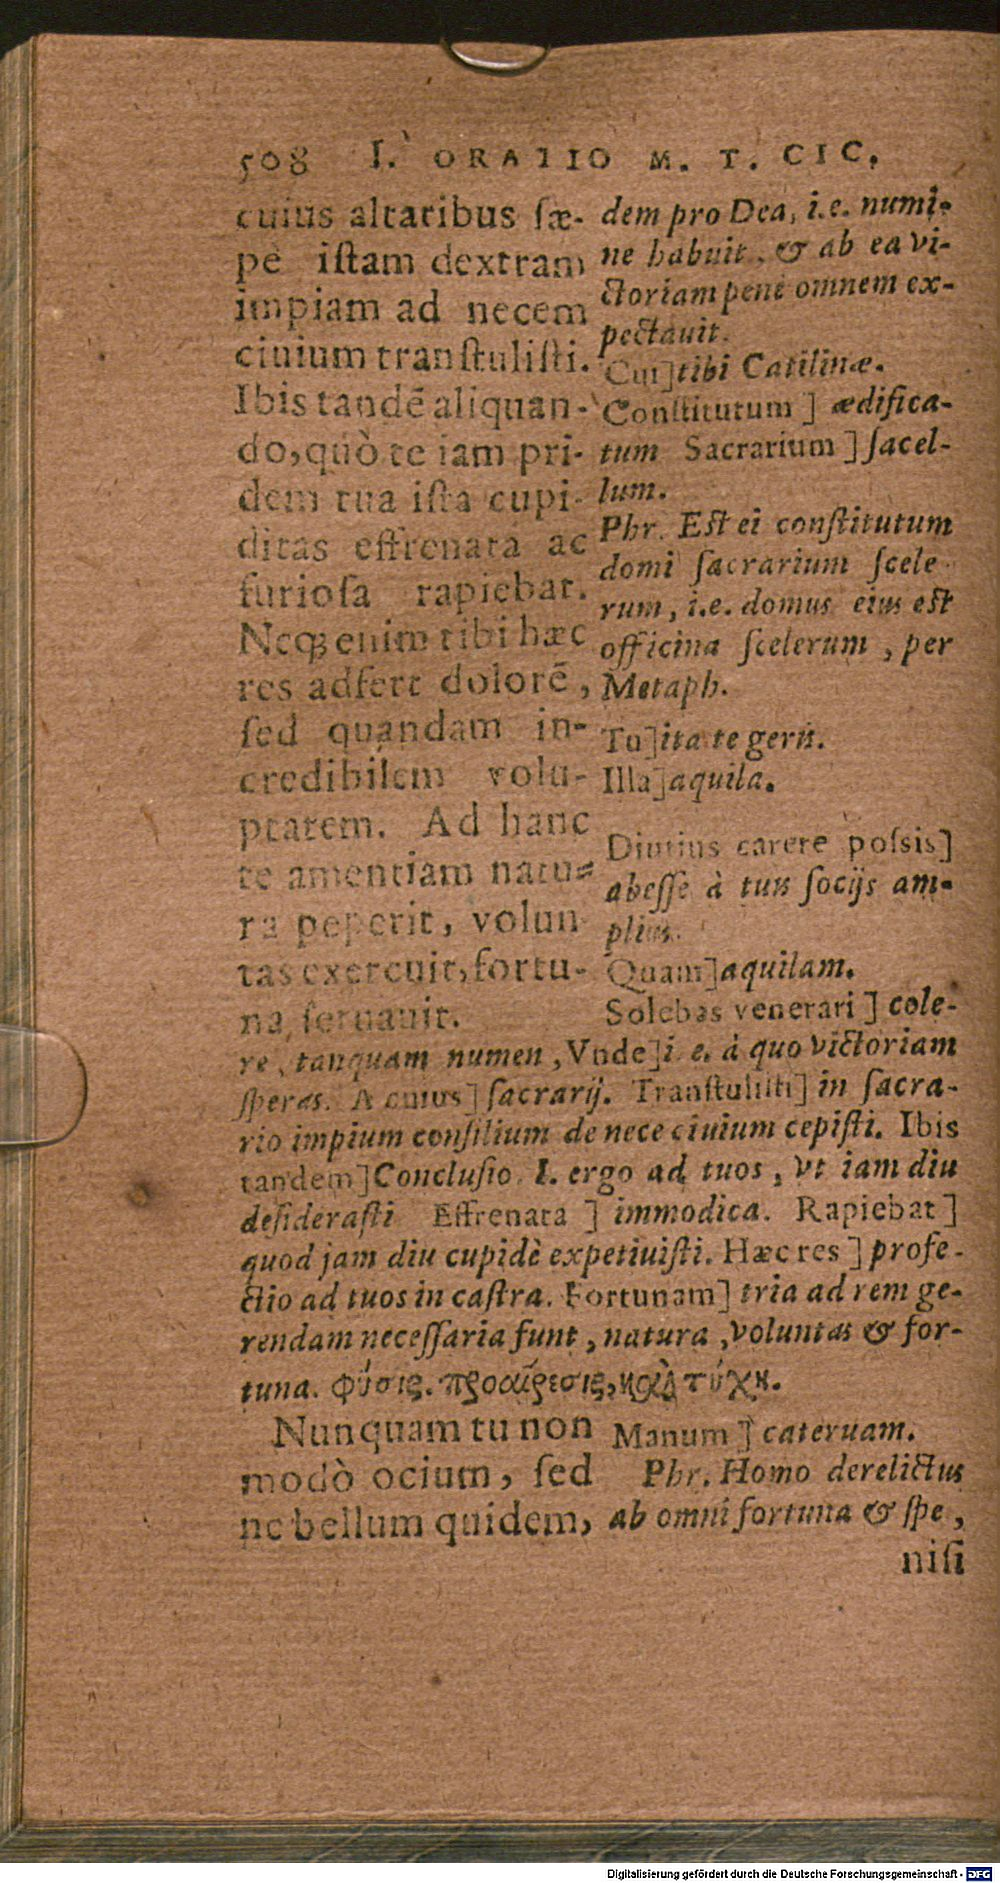 508 I. ORATIO M. T. CIC.
cuius altaribus sæ-
pe istam dextram
impiam ad necem
ciuium transtulisti.
Ibis tandē aliquan-
do, quò te iam pri-
dem tua ista cupi-
ditas effrenata ac
furiosa rapiebat.
Neq; enim tibi hæc
res adfert dolorē,
sed quandam in-
credibilem volu-
ptatem. Ad hanc
te amentiam natu-
ra peperit, volun
tas exercuit, fortu-
na seruauit.
dem pro Dea, i.e. numi-
ne habuit, & ab ea vi-
ctoriam pene omnem ex-
pectauit.
Cui] tibi Catilinæ.
Constitutum ] ædifica-
tum Sacrarium ] sacel-
lum.
Phr. Est ei constitutum
domi sacrarium scele
rum, i.e. domus eius est
officina scelerum, per
Metaph.
Tu] ita te geris.
Illa] aquila.
Diutius carere possis]
abesse à tuis socijs am-
plius.
Quam] aquilam.
Solebas venerari ] cole-
re, tanquam numen, Vnde] i. e. à quo victoriam
speras. A cuius] sacrarij. Transtulisti] in sacra-
rio impium consilium de nece ciuium cepisti. Ibis
tandem] Conclusio. I. ergo ad tuos, vt iam diu
desiderasti Effrenata ] immodica. Rapiebat ]
quod jam diu cupidè expetiuisti. Hæc res ] profe-
ctio ad tuos in castra. Fortunam] tria ad rem ge-
rendam necessaria sunt, natura, voluntas & for-
tuna. φύσις. προαίρεσις, καὶ τύχη.
Nunquam tu non
modò ocium, sed
ne bellum quidem,
Manum ] cateruam.
Phr. Homo derelictus
ab omni fortuna & spe,
nisi
Digitalisierung gefördert durch die Deutsche Forschungsgemeinschaft - DFG